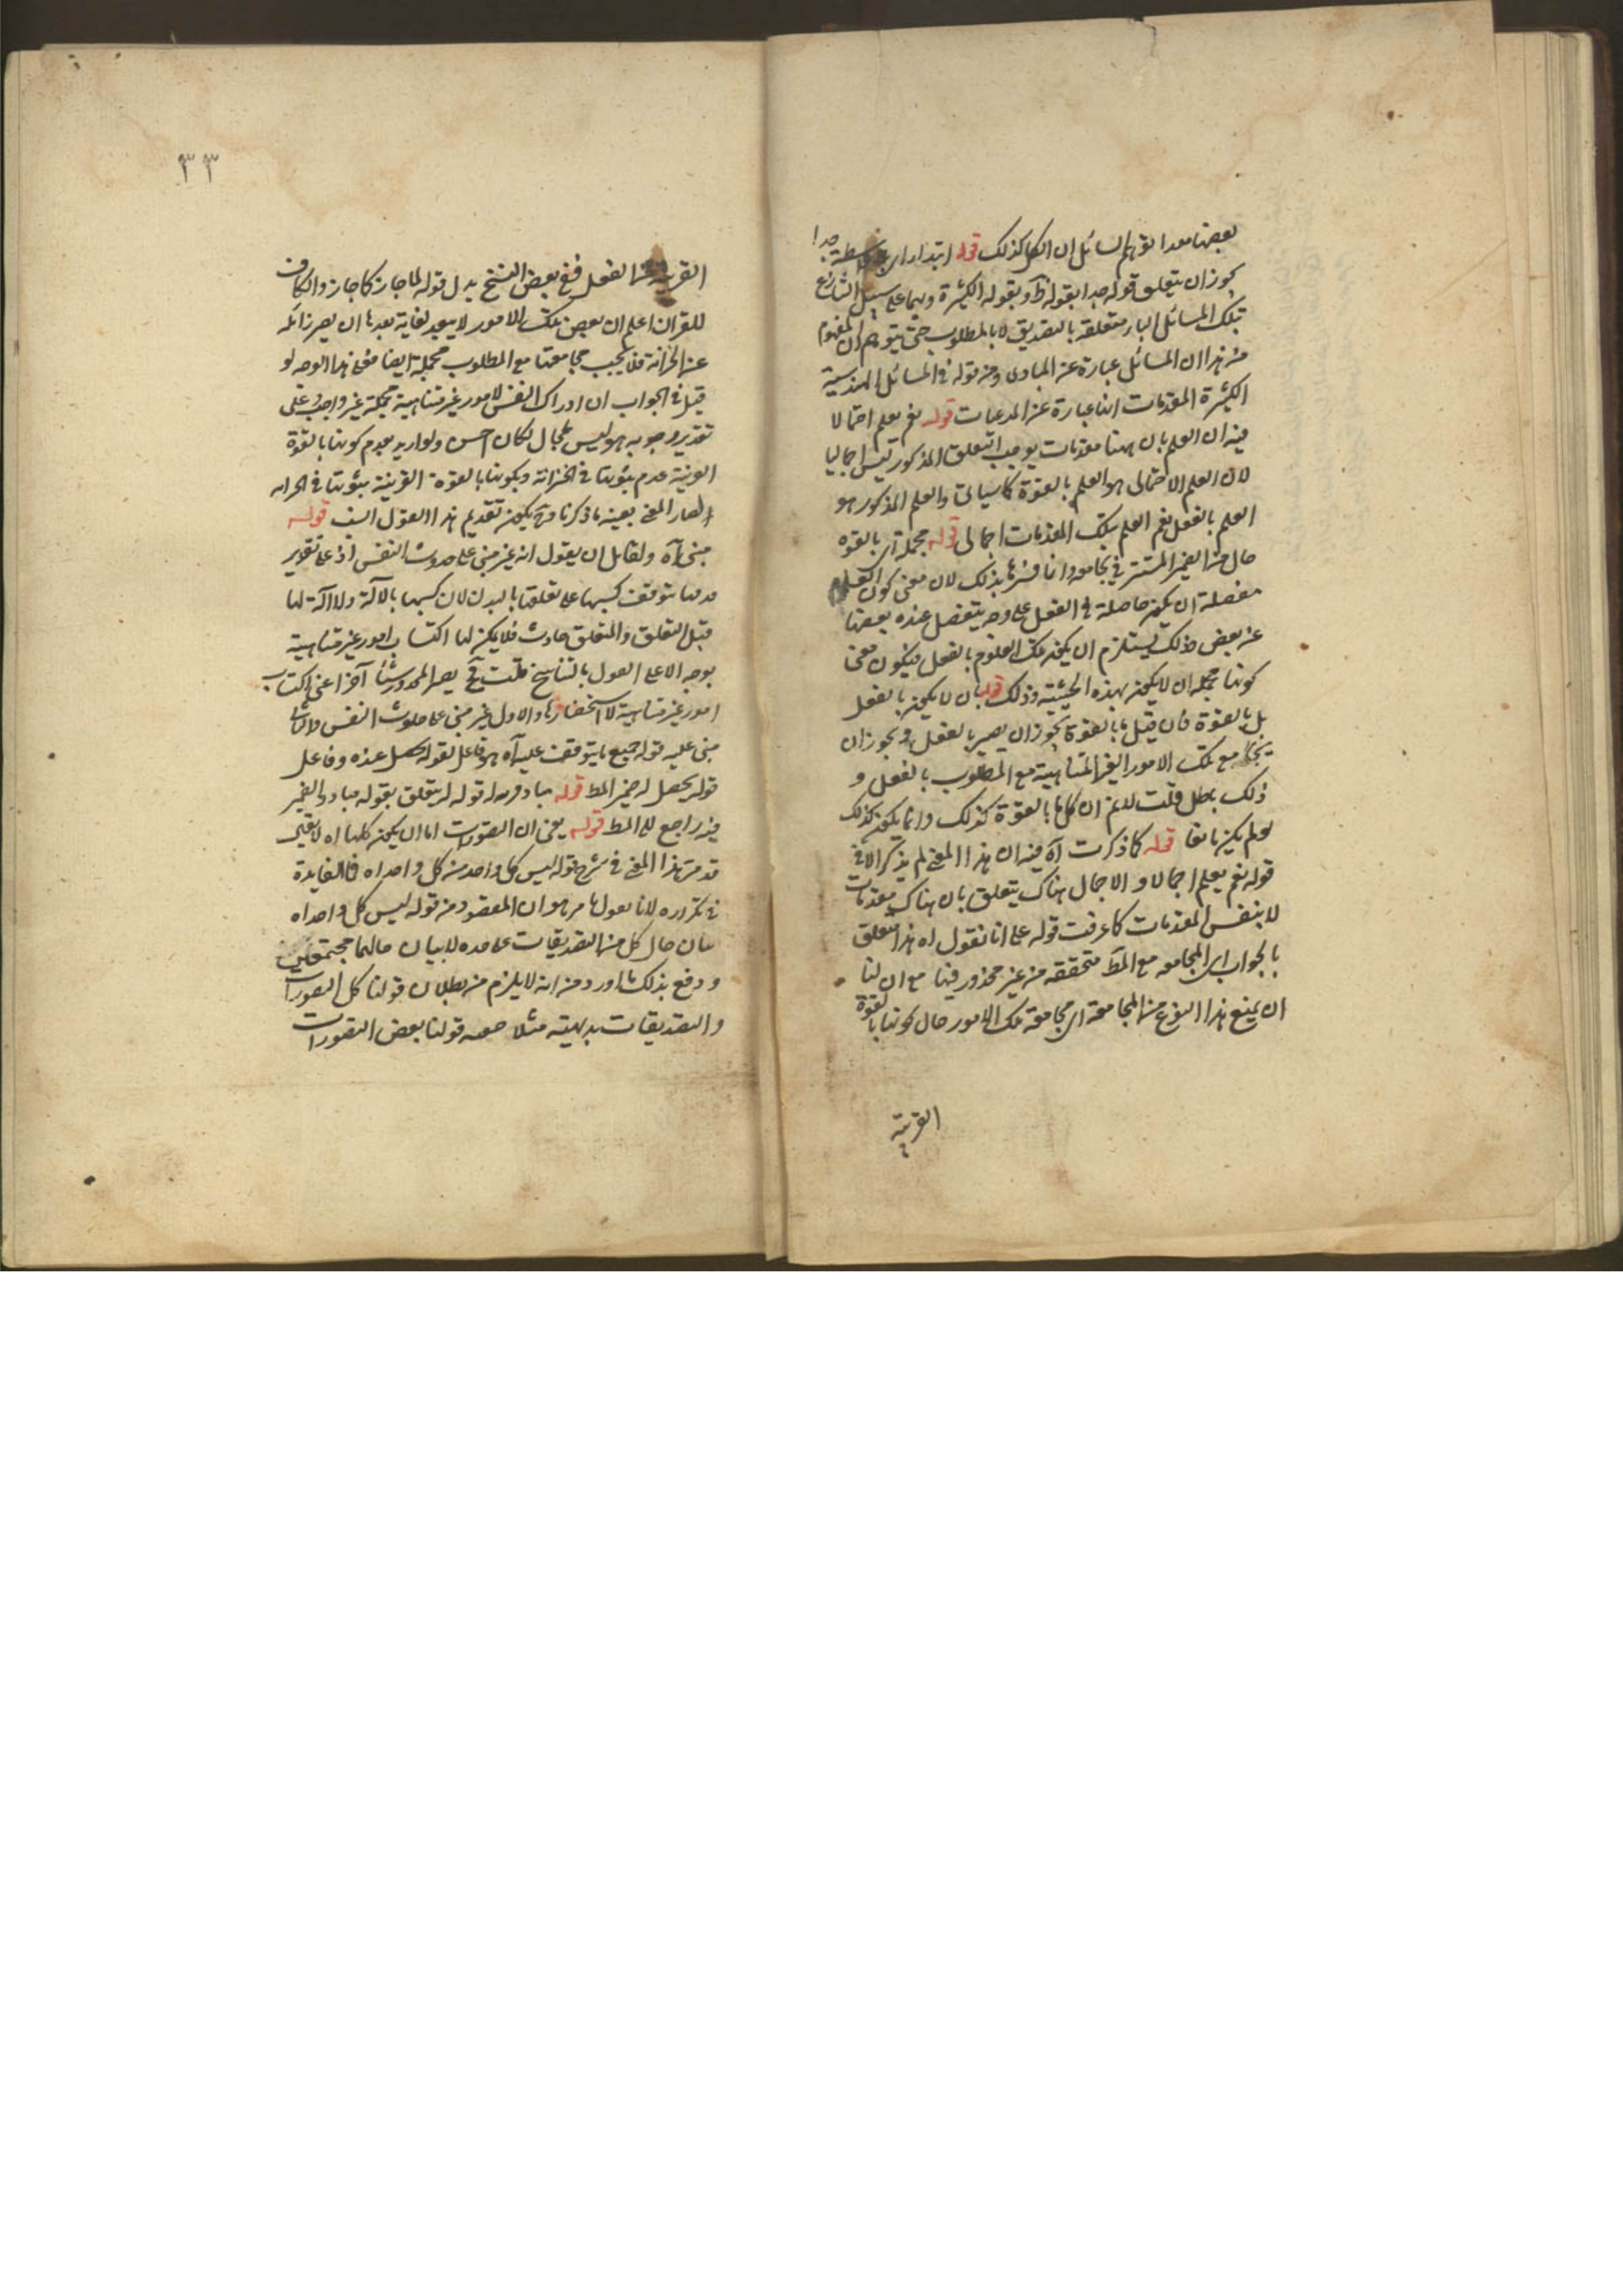 بعضها معدا توهم السائل ان الكل كذلك قوله ابتداء اى بلا واسطة جدا
يجوز ان يتعلق قوله جدا بقوله وبقوله الكثيرة وهما على سبيل التنازع
تلك المسائل الباء متعلقة بالتصديق لا بالمطلوب حتى يتوهم ان المفهوم
من هذا ان المسائل عبارة عن المبادى ومن قوله فى المسائل الهندسية
الكثيرة المقدمات انها عبارة عن المدعيات قوله نعم يعلم اجمالا
فيه ان العلم بان ههنا مقدمات يوجب التعلق المذكور ليس اجماليا
لان العلم الاجمالى هو العلم بالقوة كما سيأتى والعلم المذكور هو
العلم بالفعل نعم العلم بتلك المقدمات اجمالى قوله مجملة اى بالقوة
حال من الضمير المستتر فى مجامعة وانما فسرها بذلك لان معنى كون العلوم
مفصلة ان يكون حاصلة فى العقل على وجه يتفصل عنده بعضها
عن بعض وذلك يستلزم ان يكون تلك العلوم بالفعل فيكون معنى
كونها مجملة ان لا يكون بهذه الحيثية وذلك قوله بان لا يكون بالفعل
بل بالقوة فان قيل ما بالقوة يجوز ان يصير بالفعل ويجوز ان
يجامع تلك الامور الغير المتناهية مع المطلوب بالفعل و
ذلك بط قلت لانم ان كل ما بالقوة كذلك وانما يكون كذلك
لو لم يكن مانعا قوله كما ذكرت آه فيه ان هذا المعنى لم يذكر الا فى
قوله نعم يعلم اجمالا والاجمال هناك يتعلق بان هناك مقدمات
لا بنفس المقدمات كما عرفت قوله على انا نقول اه هذا متعلق
بالجواب اى المجامعة مع المط متحققة من غير محذور فيها مع ان لنا
ان نمنع هذا النوع من المجامعة اى مجامعة تلك الامور حال كونها بالقوة
القريبة
٣٣
القريبة من الفعل ففى بعض النسخ بدل قوله لما جاز كما جاز والكاف
للقران اعلم ان بعض تلك الامور لا يبعد لغاية بعدها ان يصير زائلة
عن الخزانة فلا يجب مجامعتها مع المطلوب مجملة ايضا فعلى هذا الوجه لو
قيل فى الجواب ان ادراك النفس لامور غير متناهية مجملة غير واجب وعلى
تقدير وجوبه هو ليس بمحال لكان احسن ولو اريد بعدم كونها بالقوة
القريبة عدم ثبوتها فى الخزانة وبكونها بالقوة القريبة ثبوتها فى الخزانة
لصار المعنى بعينه ما ذكرنا وح يكون تقديم هذا القول انسب قوله
مبنى آه ولقائل ان يقول انه غير مبنى على حدوث النفس اذ على تقدير
قدمها يتوقف كسبها على تعلقها بالبدن لان كسبها بالآلة ولا آلة لها
قبل التعلق والتعلق حادث فلا يمكن لها اكتساب امور غير متناهية
بوجه الا على القول بالتناسخ قلت فح يصير المحذور شيئا آخر اعنى اكتساب
امور غير متناهية لا استحضارها والاول غير مبنى على حدوث النفس والثانى
مبنى عليه قوله جميع ما يتوقف عليه آه هو فاعل لقوله يحصل عنده وفاعل
قوله يحصل له ضمير المط قوله مبادى قريبة له قوله له يتعلق بقوله مبادى والضمير
فيه راجع الى المط قوله يعنى ان التصورات اما ان يكون كلها اه لا يقال
قد مر هذا المعنى فى شرح قوله ليس كل واحد من كل واحد اه فما الفايدة
فى تكراره لانا نقول ما مر هو ان المقصود من قوله ليس كل واحد اه
بيان حال كل من التصديقات على حده لا بيان حالهما مجتمعتين
ودفع بذلك ما اورد من انه لا يلزم من بطلان قولنا كل التصورات
والتصديقات بديهية مثلا صحة قولنا بعض التصورات